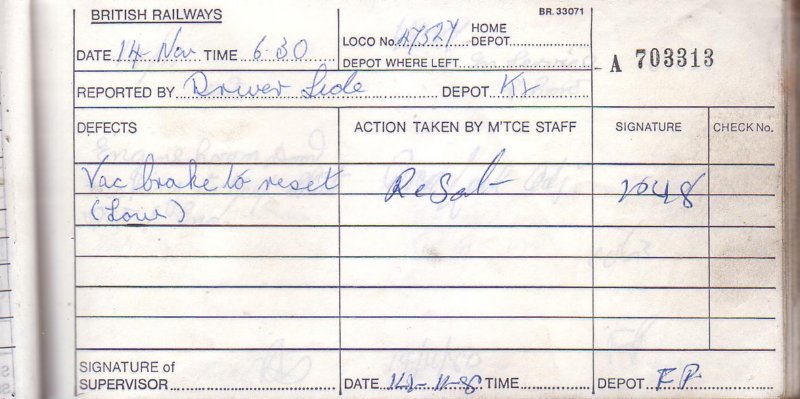 BRITISH RAILWAYS
BR.33071
DATE 14 Nov TIME 6.30
LOCO No. 47527 HOME DEPOT
DEPOT WHERE LEFT
A 703313
REPORTED BY Driver Side DEPOT KX
DEFECTS ACTION TAKEN BY M'TCE STAFF SIGNATURE CHECK No.
Vac brake to reset ReSet 2048
(Low)
SIGNATURE of
SUPERVISOR DATE 14-11-8 TIME DEPOT FP